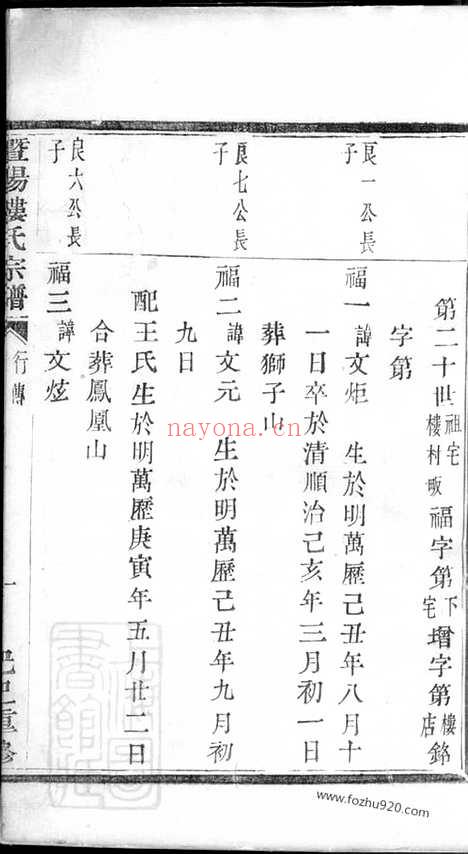 第二十世祖宅樓村畈福字第下宅增字第樓店銘
字第
良一公長子
福一諱文炬 生於明萬歷己丑年八月十
一日卒於清順治己亥年三月初一日
葬獅子山
良七公長子
福二諱文元 生於明萬歷己丑年九月初
九日
配王氏生於明萬歷庚寅年五月廿二日
合葬鳳凰山
良六公長子
福三諱文炫
暨陽樓氏宗譜 行傳 一 己巳重修
nayona.cn
www.fozhu920.com